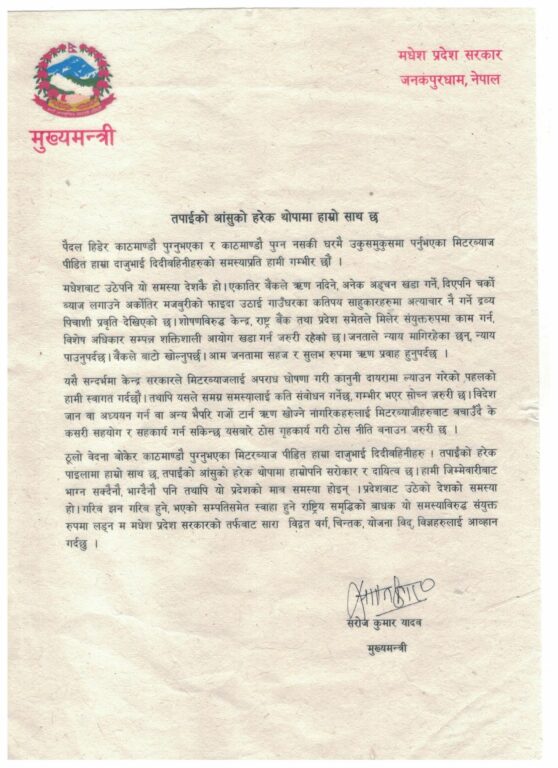 मधेश प्रदेश सरकार
जनकपुरधाम, नेपाल
मुख्यमन्त्री
तपाईको आंसुको हरेक थोपामा हाम्रो साथ छ
पैदल हिडेर काठमाण्डौ पुग्नुभएका र काठमाण्डौ पुग्न नसकी घरमै उकुसमुकुसमा पर्नुभएका मिटरब्याज
पीडित हाम्रा दाजुभाई दिदीवहिनीहरुको समस्याप्रति हामी गम्भीर छौं ।
मधेशबाट उठेपनि यो समस्या देशकै हो । एकातिर बैंकले ऋण नदिने, अनेक अड्चन खडा गर्ने, दिएपनि चर्को
ब्याज लगाउने अर्कोतिर मजबुरीको फाइदा उठाई गाउँघरका कतिपय साहुकारहरुमा अत्याचार नै गर्ने द्रव्य
पिचाशी प्रवृति देखिएको छ । शोषणविरुद्ध केन्द्र, राष्ट्र बैंक तथा प्रदेश समेतले मिलेर संयुक्तरुपमा काम गर्न,
विशेष अधिकार सम्पन्न शक्तिशाली आयोग खडा गर्न जरुरी रहेको छ । जनताले न्याय मागिरहेका छन्, न्याय
पाउनुपर्दछ । बैंकले बाटो खोल्नुपर्छ । आम जनतामा सहज र सुलभ रुपमा ऋण प्रवाह हुनुपर्दछ ।
यसै सन्दर्भमा केन्द्र सरकारले मिटरब्याजलाई अपराध घोषणा गरी कानुनी दायरामा ल्याउन गरेको पहलको
हामी स्वागत गर्दछौं । तथापि यसले समग्र समस्यालाई कति संवोधन गर्नेछ, गम्भीर भएर सोच्न जरुरी छ । विदेश
जान वा अध्ययन गर्न वा अन्य भैपरि गर्जो टार्न ऋण खोज्ने नागरिकहरुलाई मिटरब्याजीहरुबाट बचाउँदै के
कसरी सहयोग र सहकार्य गर्न सकिन्छ यसबारे ठोस गृहकार्य गरी ठोस नीति बनाउन जरुरी छ ।
ठूलो वेदना बोकेर काठमाण्डौ पुग्नुभएका मिटरब्याज पीडित हाम्रा दाजुभाई दिदीवहिनीहरु । तपाईको हरेक
पाइलामा हाम्रो साथ छ, तपाईको आंसुको हरेक थोपामा हाम्रोपनि सरोकार र दायित्व छ । हामी जिम्मेवारीबाट
भाग्न सक्दैनौं, भाग्दैनौं पनि तथापि यो प्रदेशको मात्र समस्या होइन् । प्रदेशबाट उठेको देशको समस्या
हो । गरिव झन गरिव हुने, भएको सम्पतिसमेत स्वाहा हुने राष्ट्रिय समृद्धिको बाधक यो समस्याविरुद्ध संयुक्त
रुपमा लड्न म मधेश प्रदेश सरकारको तर्फबाट सारा विद्वत वर्ग, चिन्तक, योजना विद्, विज्ञहरुलाई आव्हान
गर्दछु ।
सरोज कुमार यादव
मुख्यमन्त्री